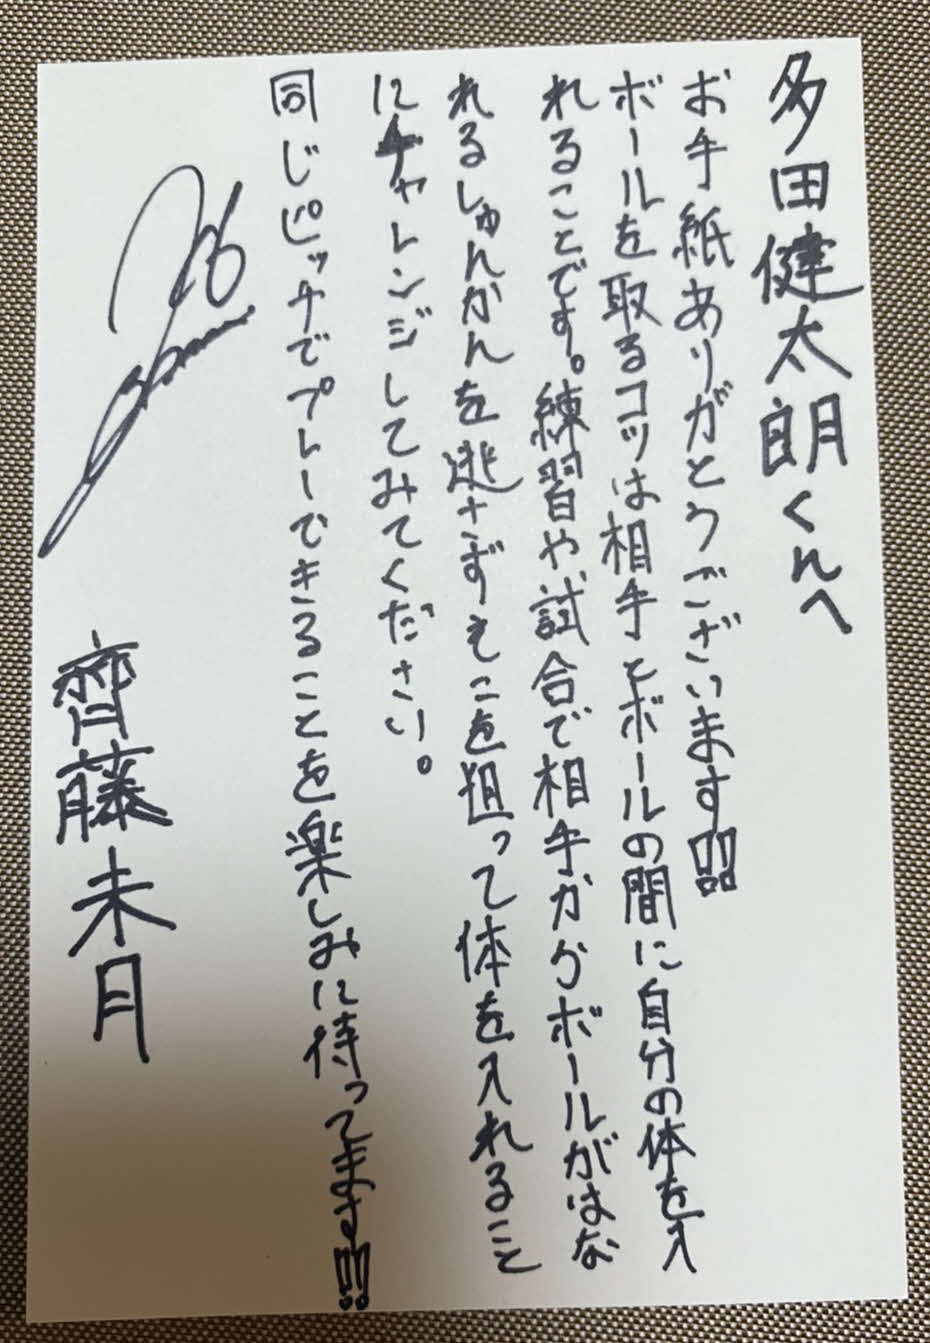 多田健太朗くんへ
お手紙ありがとうございます!!!
ボールを取るコツは相手とボールの間に自分の体を入
れることです。練習や試合で相手からボールがはな
れるしゅんかんを逃さずそこを狙って体を入れること
にチャレンジしてみてください。
同じピッチでプレーできることを楽しみに待ってます!!!
齊藤未月